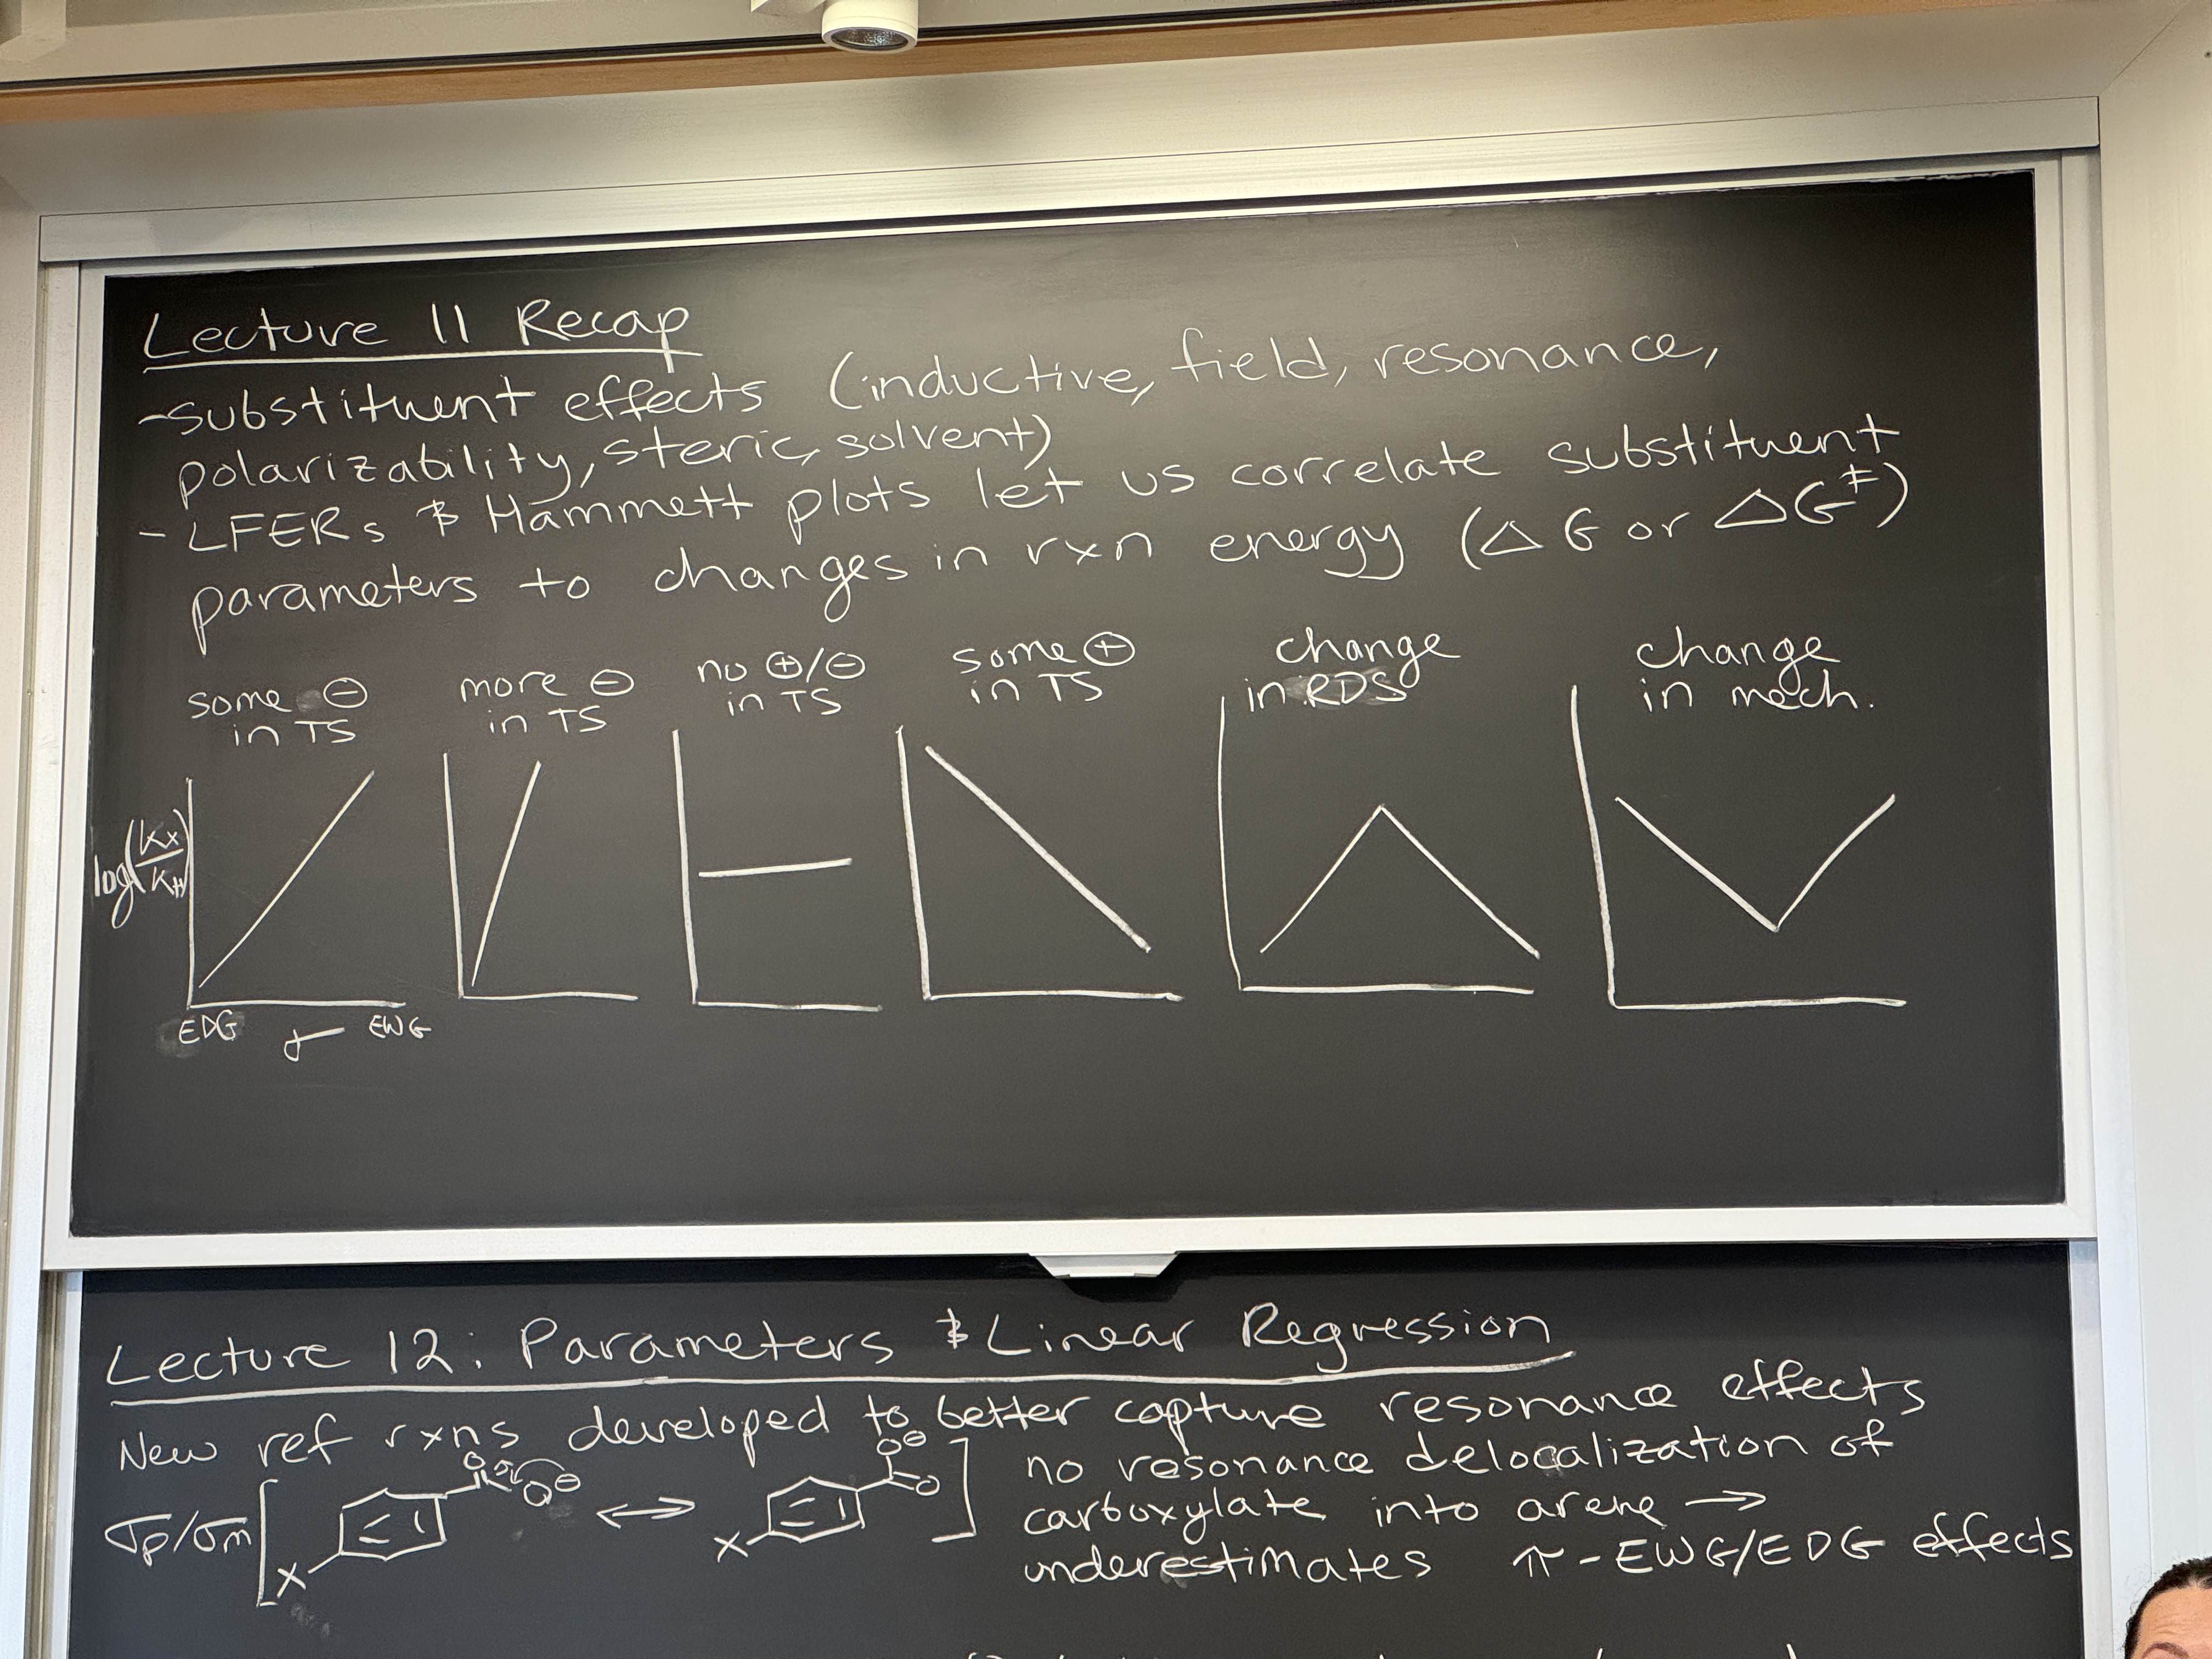 Lecture 11 Recap
-Substituent effects (inductive, field, resonance,
polarizability, steric, solvent)
- LFERs & Hammett plots let us correlate substituent
parameters to changes in rxn energy (ΔG or ΔG‡)
some ⊖
in TS
more ⊖
in TS
no ⊕/⊖
in TS
some ⊕
in TS
change
in RDS
change
in mech.
log(Kx/KH)
EDG σ EWG
Lecture 12: Parameters & Linear Regression
New ref rxns developed to better capture resonance effects
σp/σm [ X O O⊖ ↔ X O⊖ O ]
no resonance delocalization of
carboxylate into arene →
underestimates π-EWG/EDG effects